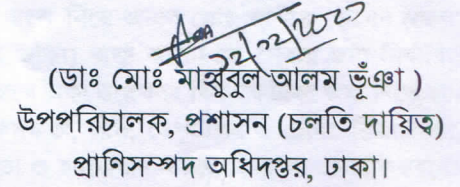 (ডাঃ মোঃ মাহ্বুবুল আলম ভূঁঞা )
উপপরিচালক, প্রশাসন (চলতি দায়িত্ব)
প্রাণিসম্পদ অধিদপ্তর, ঢাকা।